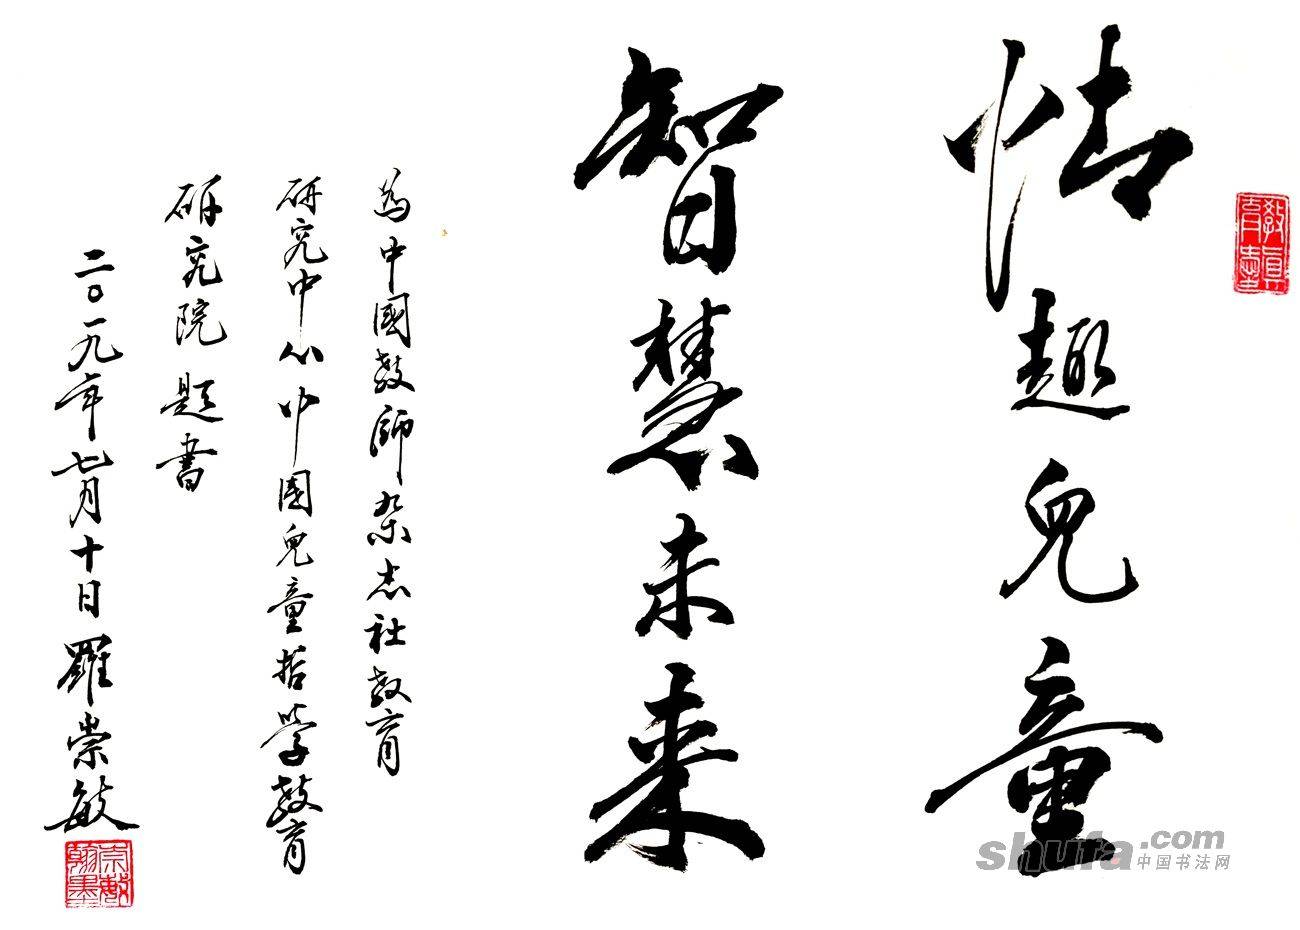 情趣兒童
智慧未来
為中國教師杂志社教育
研究中心中国兒童哲学教育
研究院题書
二〇一九年七月十日羅崇敏
shufa.com
中国书法网